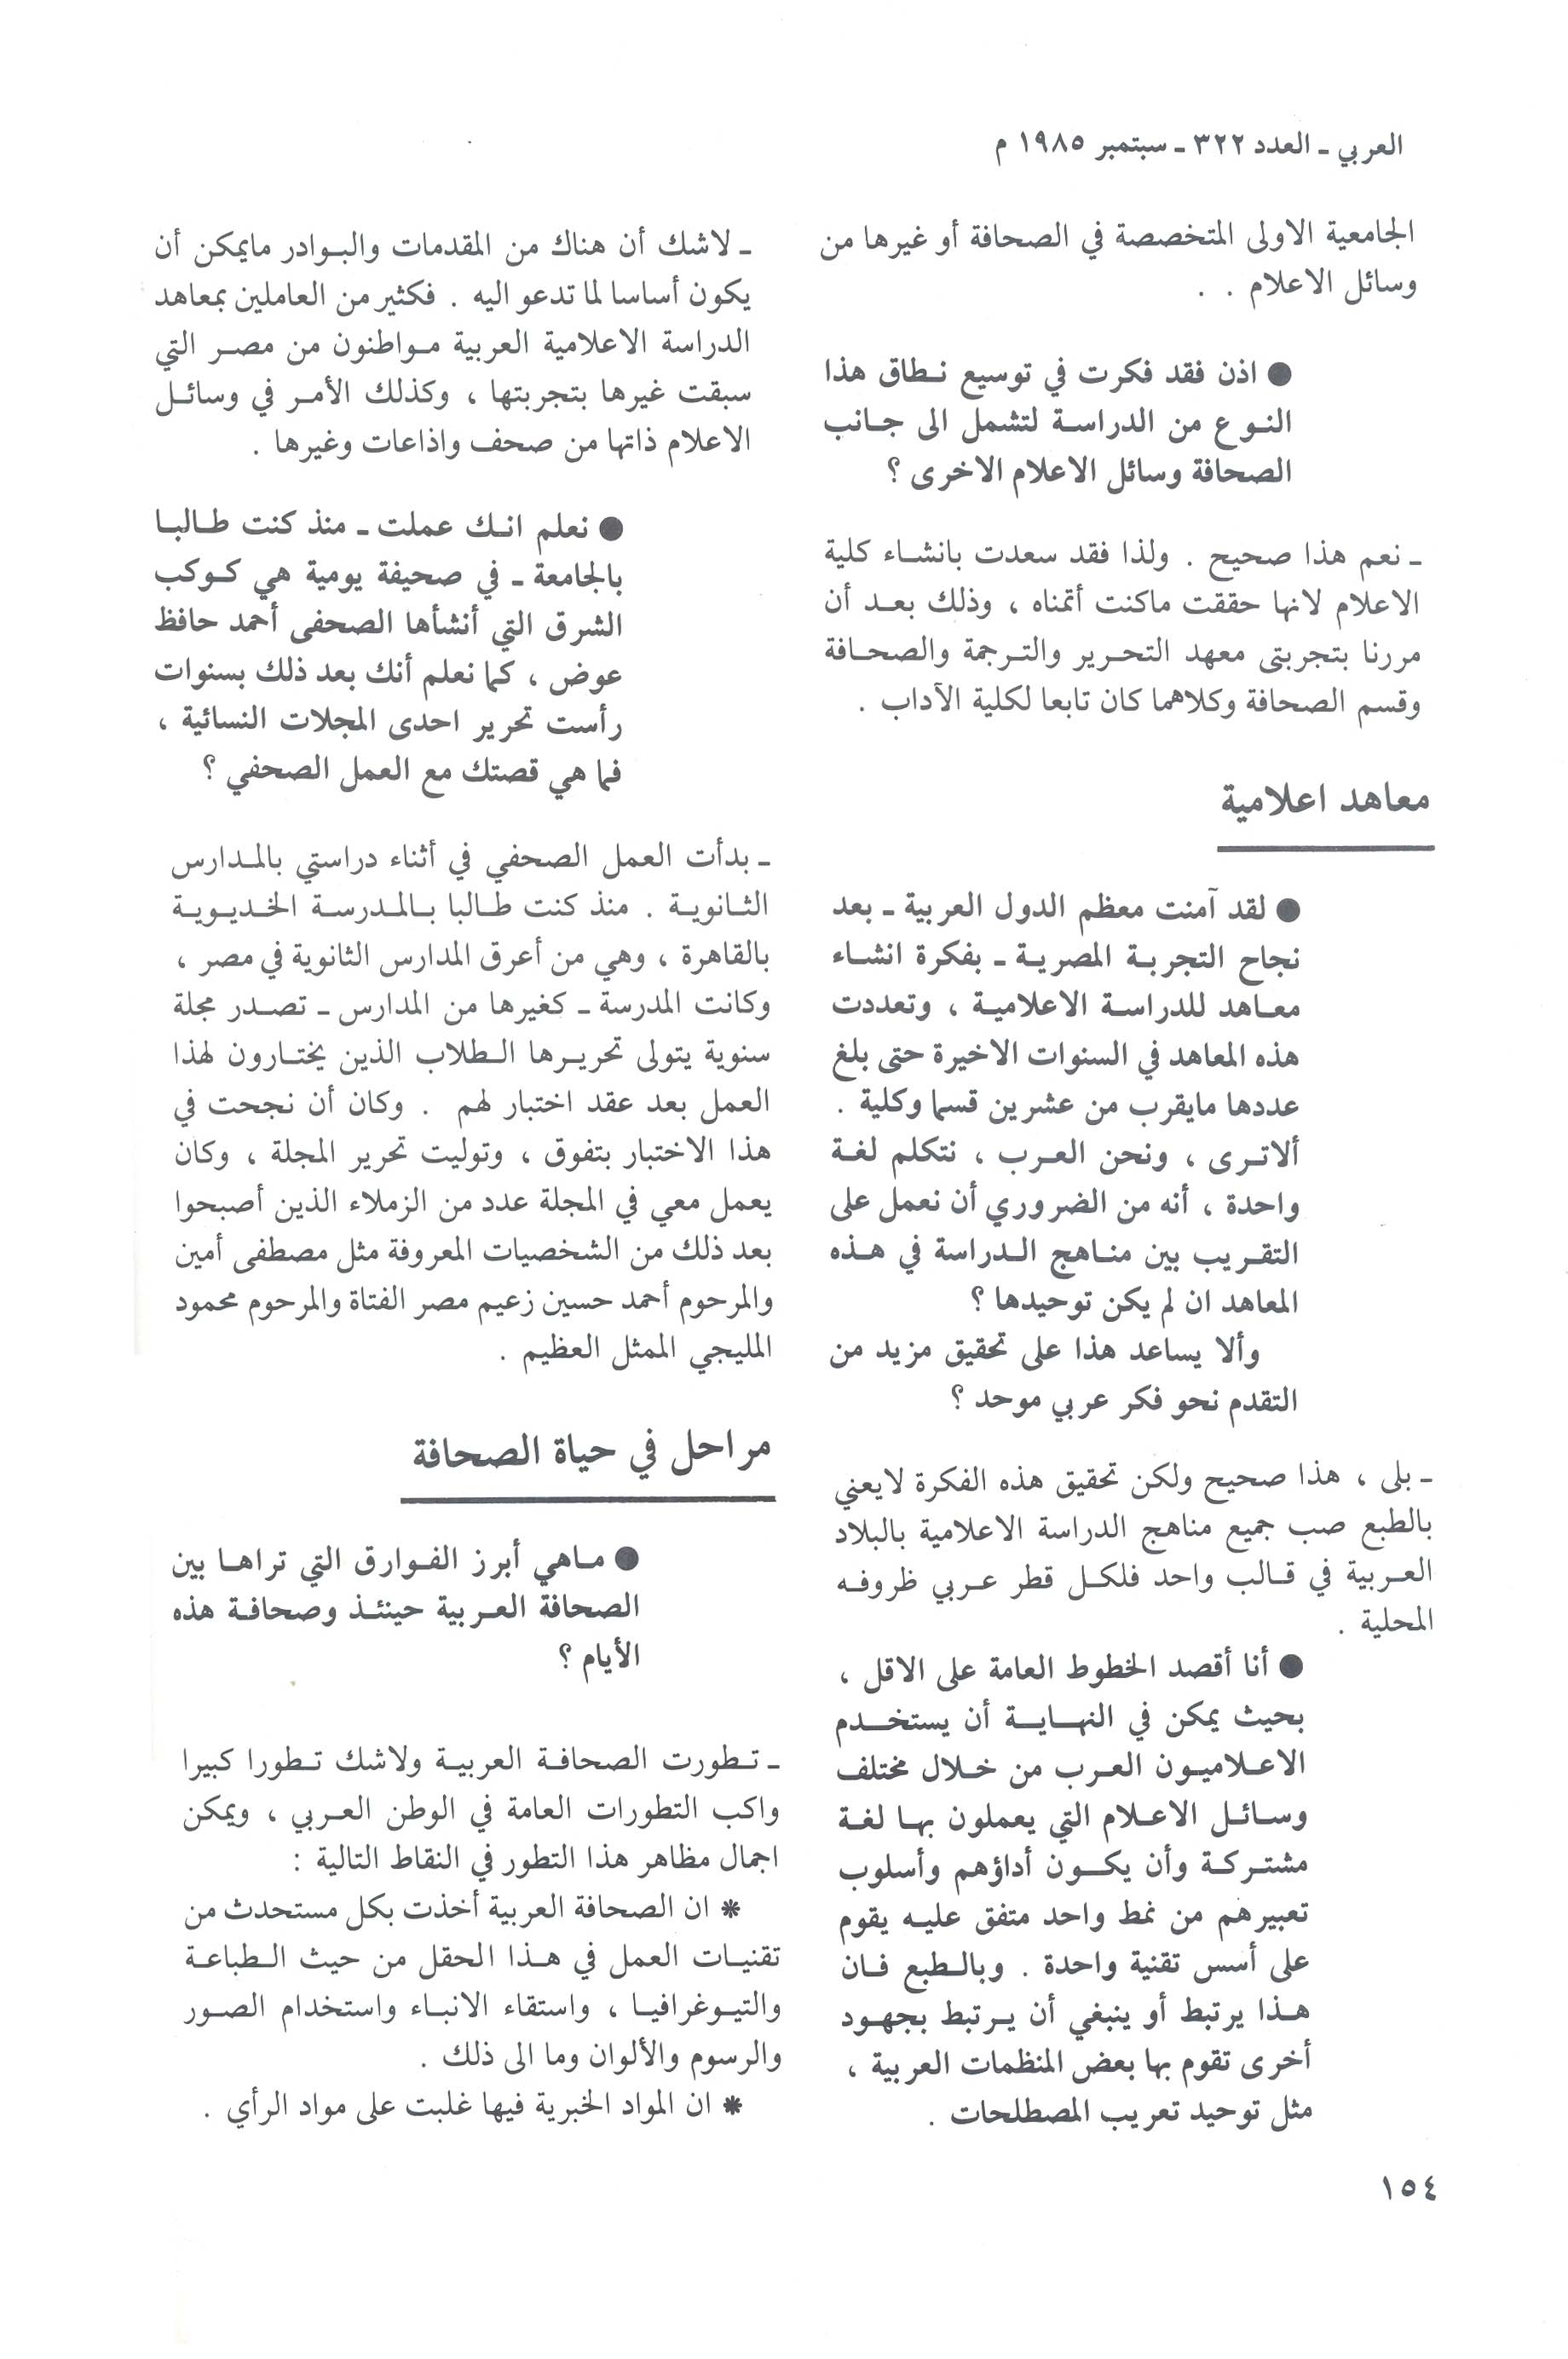 العربي ـ العدد ٣٢٢ ـ سبتمبر ١٩٨٥ م
الجامعية الاولى المتخصصة في الصحافة أو غيرها من
وسائل الاعلام . .
● اذن فقد فكرت في توسيع نطاق هذا
النوع من الدراسة لتشمل الى جانب
الصحافة وسائل الاعلام الاخرى ؟
ـ نعم هذا صحيح . ولذا فقد سعدت بانشاء كلية
الاعلام لانها حققت ماكنت أتمناه ، وذلك بعد أن
مررنا بتجربتى معهد التحرير والترجمة والصحافة
وقسم الصحافة وكلاهما كان تابعا لكلية الآداب .
معاهد اعلامية
● لقد آمنت معظم الدول العربية ـ بعد
نجاح التجربة المصرية ـ بفكرة انشاء
معاهد للدراسة الاعلامية ، وتعددت
هذه المعاهد في السنوات الاخيرة حتى بلغ
عددها مايقرب من عشرين قسما وكلية .
ألاترى ، ونحن العرب ، نتكلم لغة
واحدة ، أنه من الضروري أن نعمل على
التقريب بين مناهج الدراسة في هذه
المعاهد ان لم يكن توحيدها ؟
وألا يساعد هذا على تحقيق مزيد من
التقدم نحو فكر عربي موحد ؟
ـ بلى ، هذا صحيح ولكن تحقيق هذه الفكرة لايعني
بالطبع صب جميع مناهج الدراسة الاعلامية بالبلاد
العربية في قالب واحد فلكل قطر عربي ظروفه
المحلية .
● أنا أقصد الخطوط العامة على الاقل ،
بحيث يمكن في النهاية أن يستخدم
الاعلاميون العرب من خلال مختلف
وسائل الاعلام التي يعملون بها لغة
مشتركة وأن يكون أداؤهم وأسلوب
تعبيرهم من نمط واحد متفق عليه يقوم
على أسس تقنية واحدة . وبالطبع فان
هذا يرتبط أو ينبغي أن يرتبط بجهود
أخرى تقوم بها بعض المنظمات العربية ،
مثل توحيد تعريب المصطلحات .
ـ لاشك أن هناك من المقدمات والبوادر مايمكن أن
يكون أساسا لما تدعو اليه . فكثير من العاملين بمعاهد
الدراسة الاعلامية العربية مواطنون من مصر التي
سبقت غيرها بتجربتها ، وكذلك الأمر في وسائل
الاعلام ذاتها من صحف واذاعات وغيرها .
● نعلم انك عملت ـ منذ كنت طالبا
بالجامعة ـ في صحيفة يومية هي كوكب
الشرق التي أنشأها الصحفى أحمد حافظ
عوض ، كما نعلم أنك بعد ذلك بسنوات
رأست تحرير احدى المجلات النسائية ،
فما هي قصتك مع العمل الصحفي ؟
ـ بدأت العمل الصحفي في أثناء دراستي بالمدارس
الثانوية . منذ كنت طالبا بالمدرسة الخديوية
بالقاهرة ، وهي من أعرق المدارس الثانوية في مصر ،
وكانت المدرسة ـ كغيرها من المدارس ـ تصدر مجلة
سنوية يتولى تحريرها الطلاب الذين يختارون لهذا
العمل بعد عقد اختبار لهم . وكان أن نجحت في
هذا الاختبار بتفوق ، وتوليت تحرير المجلة ، وكان
يعمل معي في المجلة عدد من الزملاء الذين أصبحوا
بعد ذلك من الشخصيات المعروفة مثل مصطفى أمين
والمرحوم أحمد حسين زعيم مصر الفتاة والمرحوم محمود
المليجي الممثل العظيم .
مراحل في حياة الصحافة
● ماهي أبرز الفوارق التي تراها بين
الصحافة العربية حينئذ وصحافة هذه
الأيام ؟
ـ تطورت الصحافة العربية ولاشك تطورا كبيرا
واكب التطورات العامة في الوطن العربي ، ويمكن
اجمال مظاهر هذا التطور في النقاط التالية :
* ان الصحافة العربية أخذت بكل مستحدث من
تقنيات العمل في هذا الحقل من حيث الطباعة
والتيوغرافيا ، واستقاء الانباء واستخدام الصور
والرسوم والألوان وما الى ذلك .
* ان المواد الخبرية فيها غلبت على مواد الرأي .
١٥٤